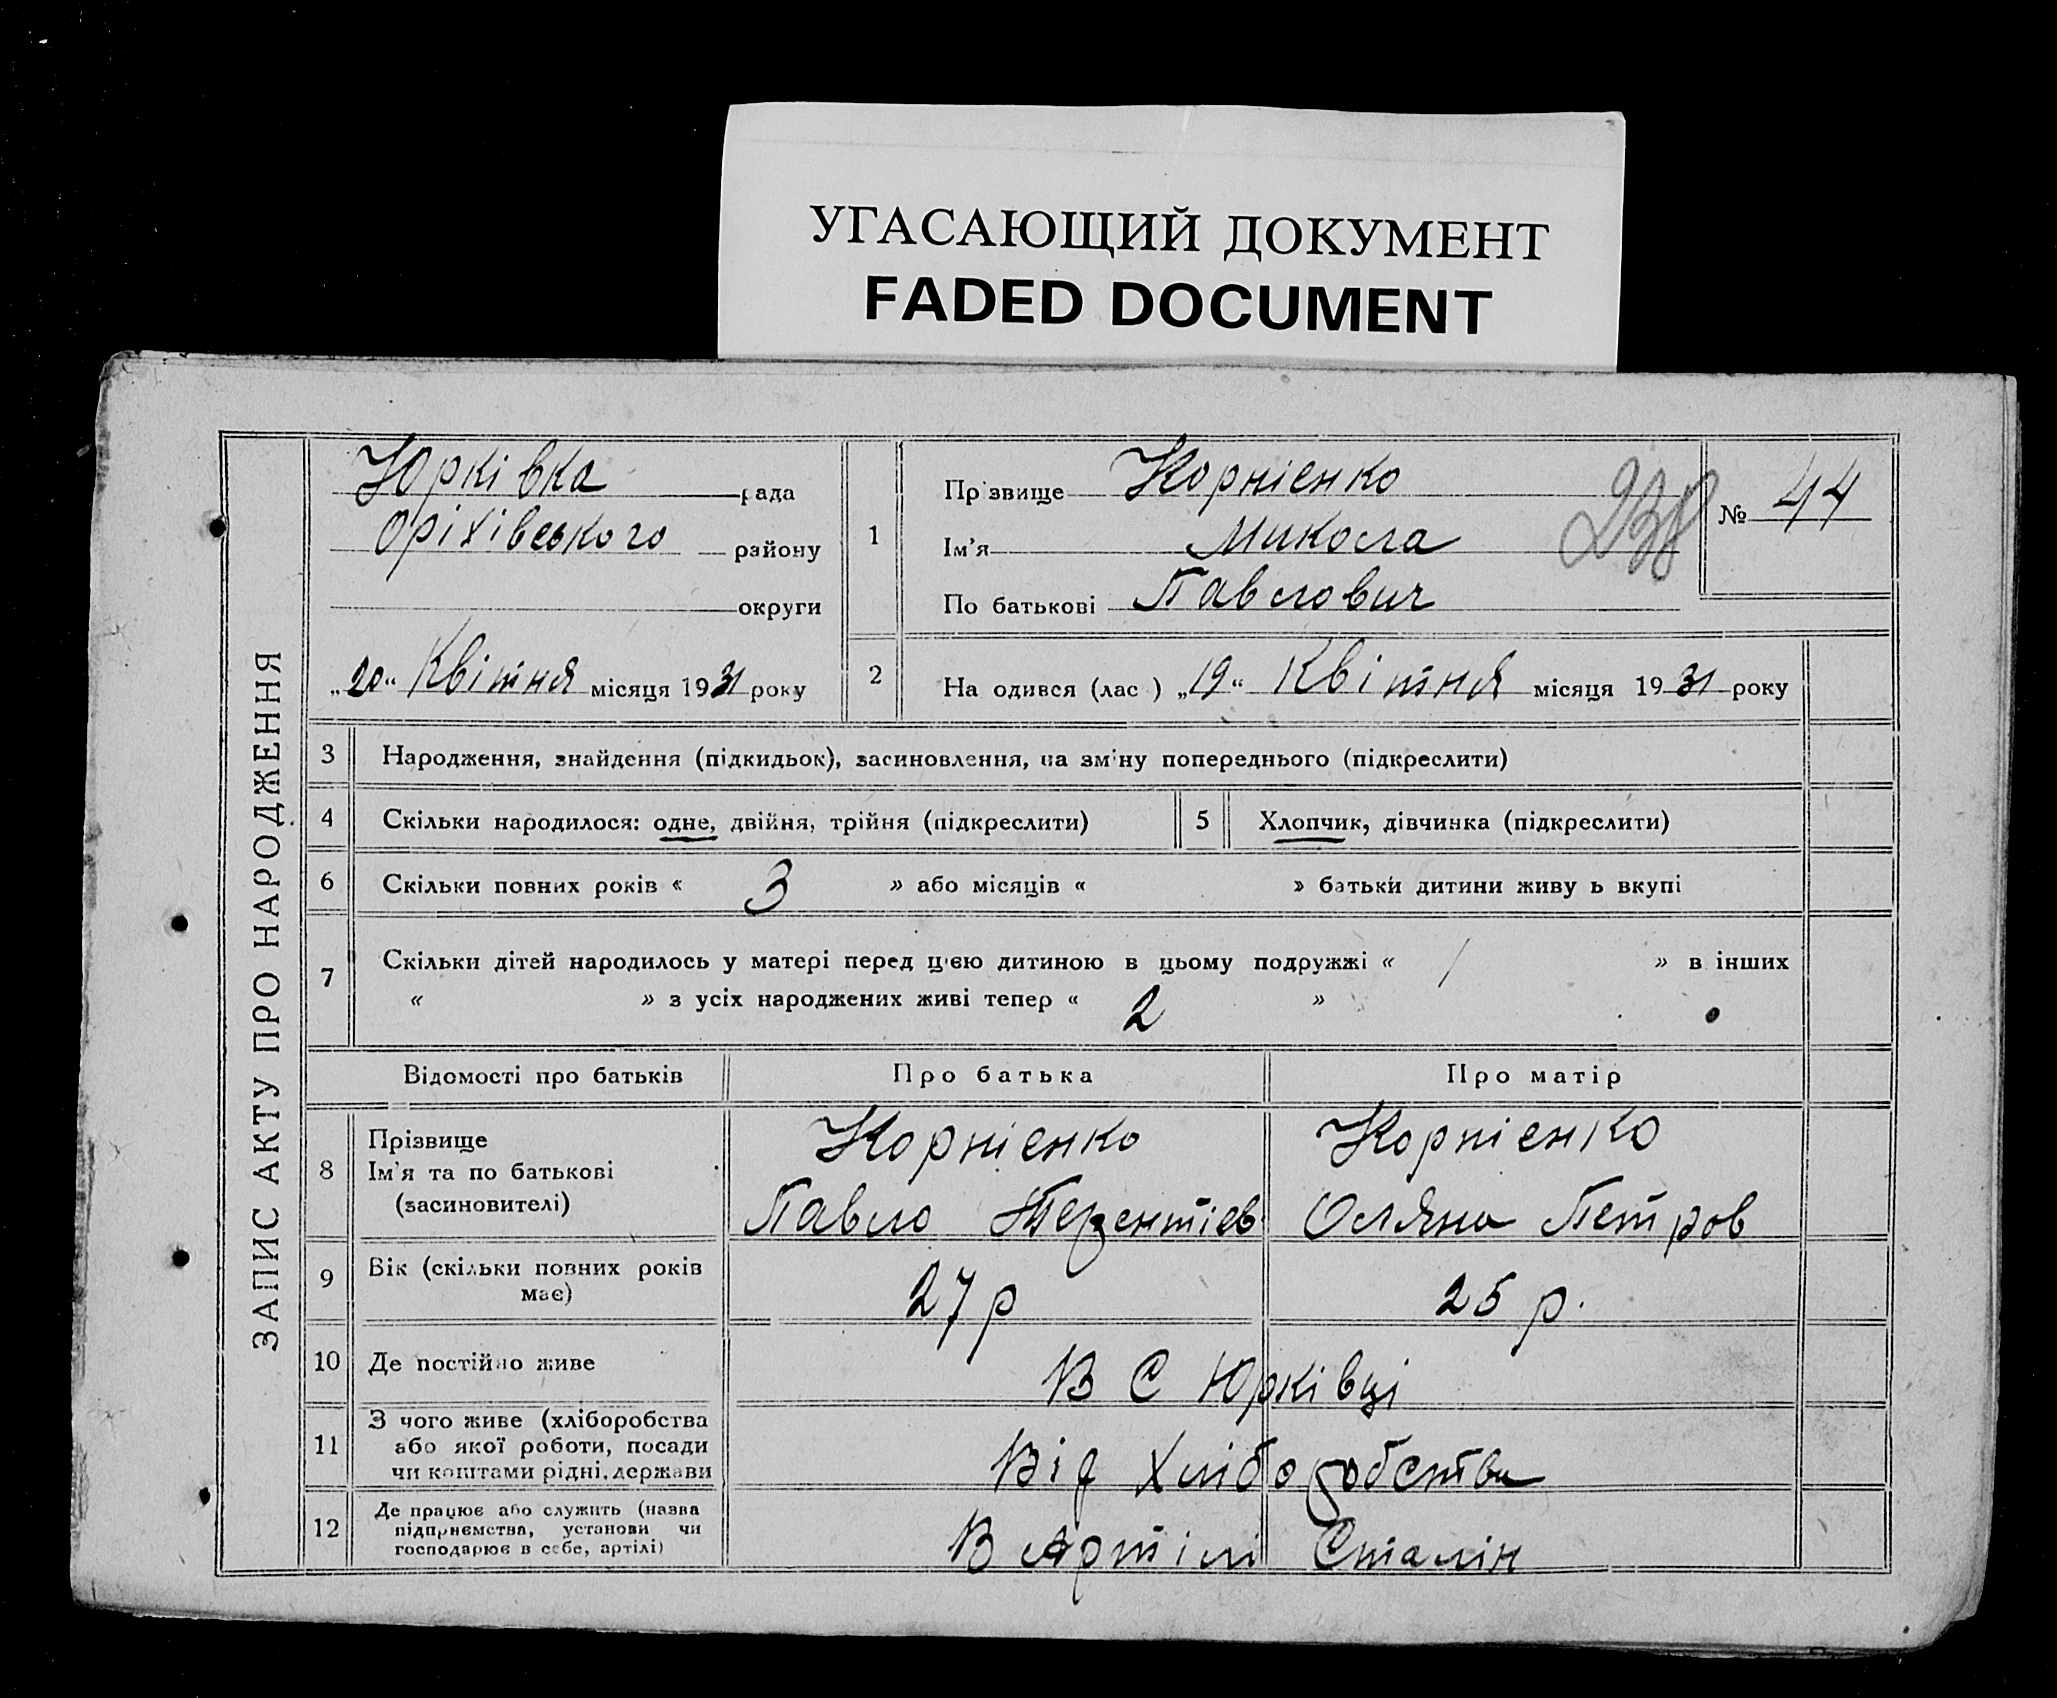 УГАСАЮЩИЙ ДОКУМЕНТ
FADED DOCUMENT
ЗАПИС АКТУ ПРО НАРОДЖЕННЯ
Юрківка рада
Оріхівського району
округи
„20“ Квітня місяця 1931 року
1
Прізвище Корнієнко
Ім'я Микола
По батькові Павлович
238
№ 44
2
На одився (лас ) „19“ Квітня місяця 1931 року
3 Народження, знайдення (підкидьок), засиновлення, на зміну попереднього (підкреслити)
4 Скільки народилося: одне, двійня, трійня (підкреслити)
5 Хлопчик, дівчинка (підкреслити)
6 Скільки повних років « 3 » або місяців « » батьки дитини живу ь вкупі
7 Скільки дітей народилось у матері перед цією дитиною в цьому подружжі « / » в інших
« » з усіх народжених живі тепер « 2 »
Відомості про батьків
Про батька
Про матір
8 Прізвище
Ім'я та по батькові
(засиновителі)
Корнієнко
Павло Терентієв
Корнієнко
Оляна Петров
9 Вік (скільки повних років
має)
27 р
25 р.
10 Де постійно живе
В С Юрківці
11 З чого живе (хліборобства
або якої роботи, посади
чи коштами рідні, держави
Від Хліборобства
12 Де працює або служить (назва
підприємства, установи чи
господарює в себе, артілі)
В Артілі Сталін